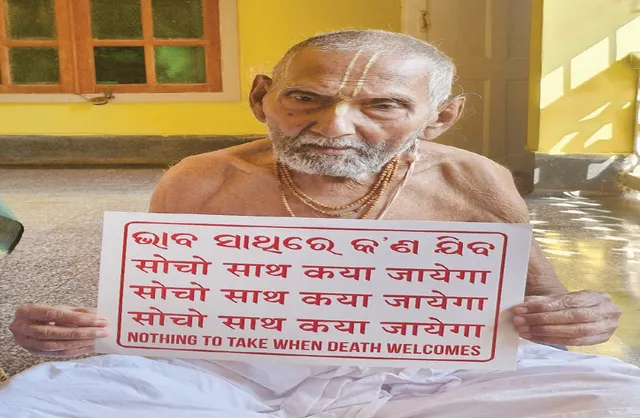 ଭାବ ସାଥିରେ କ'ଣ ଯିବ
सोचो साथ कया जायेगा
सोचो साथ कया जायेगा
सोचो साथ कया जायेगा
NOTHING TO TAKE WHEN DEATH WELCOMES